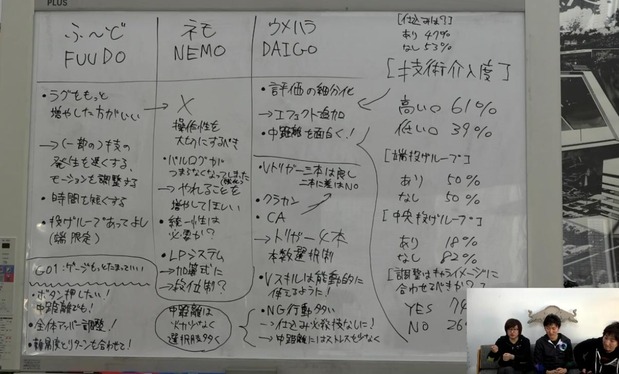 PLUS
ふ〜ど
FUUDO
・ラグをもっと
増やした方がいい
→(一部の)技の
発生を遅くする、
モーションを調整する
・時間を短くする
・投げループあってよし
(端限定)
G01:ゲージもっとたまっていい
・ボタン押したい!
中距離でも!
・全体アッパー調整!
・難易度とリターンを合わせて!
ネモ
NEMO
→ X
操作性を
大切にするべき
・バルログが
つまらなくなってしまった
→やれることを
増やしてほしい
・統一性は
必要か?
・LPシステム
→加算式に
→段位制?
中距離は
火力少なく
選択肢多く
ウメハラ
DAIGO
・評価の細分化
→エフェクト追加
・中距離を面白く!
・Vトリガー三本は良し
二本に差はNO
・クラカン
・CA
→トリガー4本
本数選択制
・Vスキルは能動的に
使えるように!
・NG行動多い
→仕込み必殺技なしに!
→中距離にはストレスを少なく
[仕込みは?]
あり 47%
なし 53%
[技術介入度]
高い 61%
低い 39%
[端投げループ]
あり 50%
なし 50%
[中央投げループ]
あり 18%
なし 82%
[調整はキャライメージに
合わせるべきか?]
YES 74
NO 26